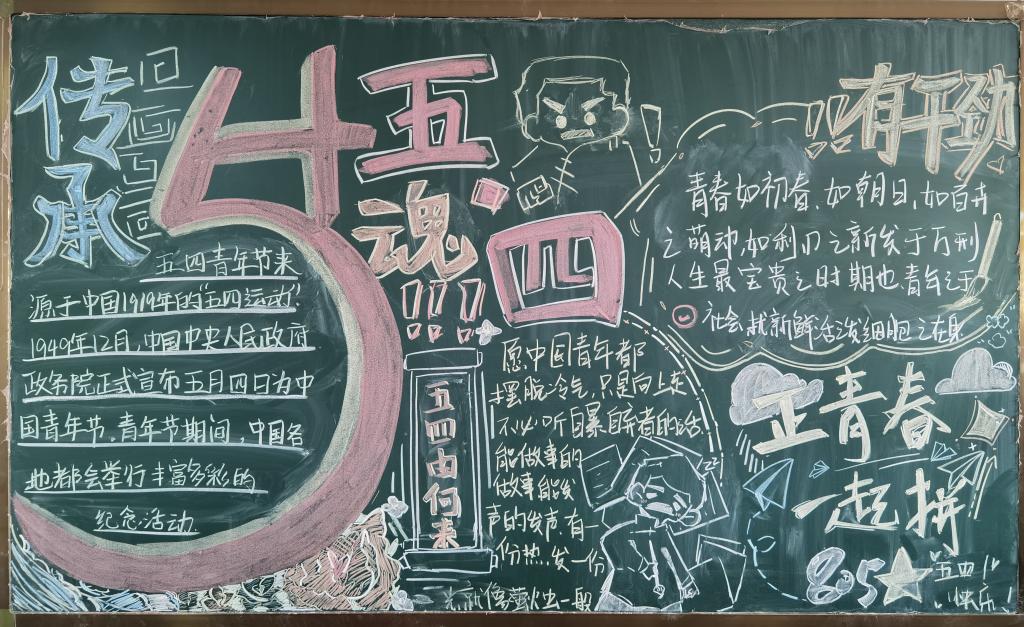 传承
五四魂!!!
五四青年节来
源于中国1919年的"五四运动".
1949年12月,中国中央人民政府
政务院正式宣布五月四日为中
国青年节。青年节期间,中国各
地都会举行丰富多彩的
纪念活动
五四由何来
愿中国青年都
摆脱冷气,只是向上走
不必听自暴自弃者的话.
能做事的
做事能发
声的发声.有一
份热,发一份
萤火一般
!!有干劲
青春如初春,如朝日,如百卉
之萌动,如利刃之新发于刑
人生最宝贵之时期也青年之于
社会就新鲜活泼细胞之在身
正青春
一起拼
85
五四
快乐